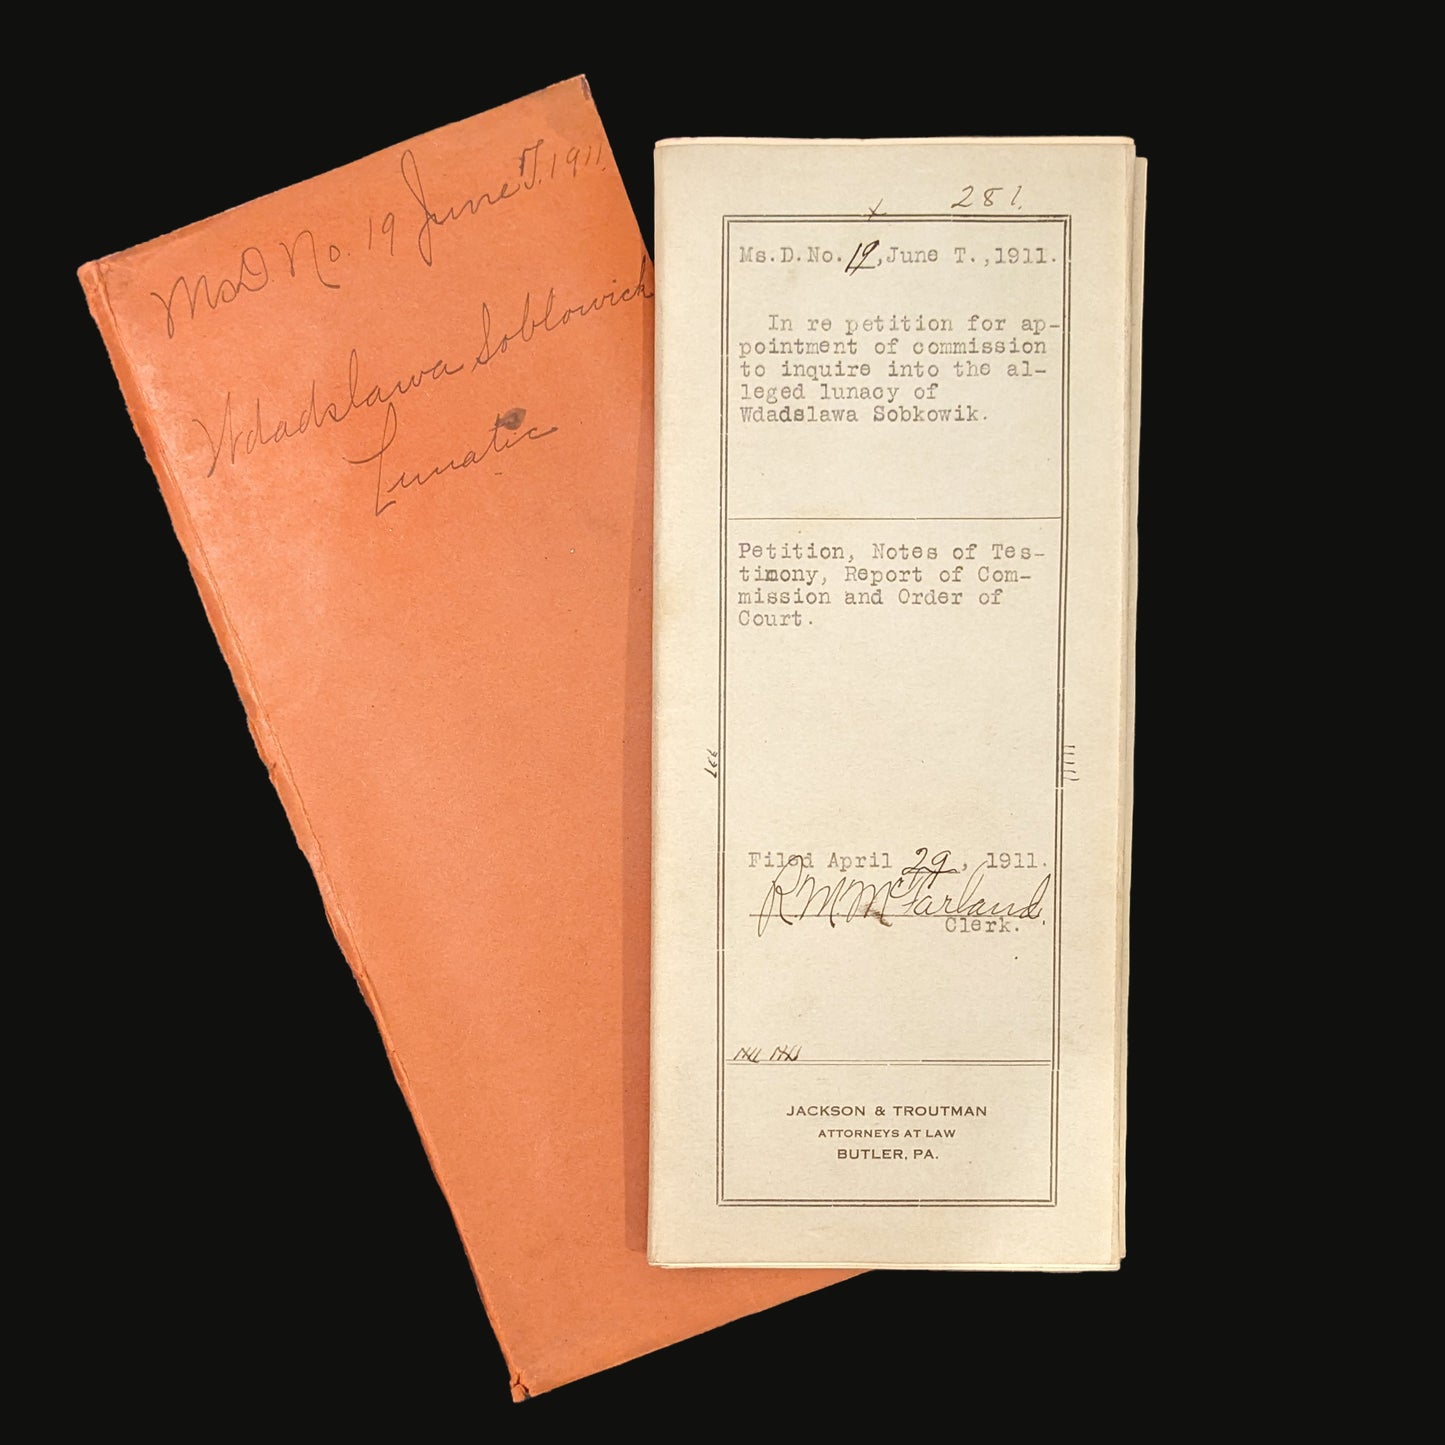 MsD. No. 19 June T. 1911.
Wdadslawa Soblowick
Lunatic
281.
x
Ms.D.No. 19, June T.,1911.
In re petition for ap-
pointment of commission
to inquire into the al-
leged lunacy of
Wdadslawa Sobkowik.
Petition, Notes of Tes-
timony, Report of Com-
mission and Order of
Court.
Filed April 29, 1911.
R.M. McFarland.
Clerk.
JACKSON & TROUTMAN
ATTORNEYS AT LAW
BUTLER, PA.